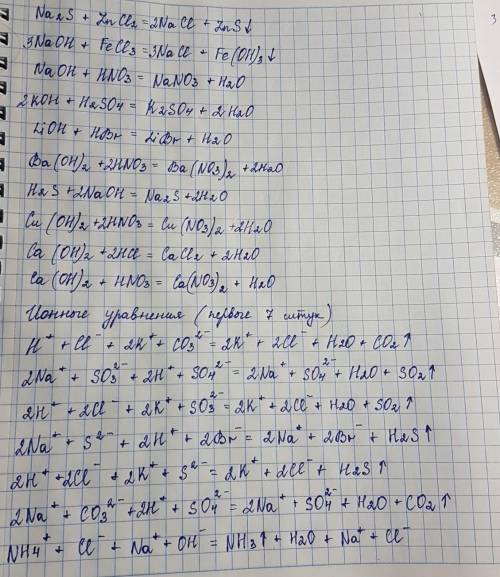 Na₂S + ZnCl₂ = 2NaCl + ZnS↓
3NaOH + FeCl₃ = 3NaCl + Fe(OH)₃↓
NaOH + HNO₃ = NaNO₃ + H₂O
2KOH + H₂SO₄ = K₂SO₄ + 2H₂O
LiOH + HBr = LiBr + H₂O
Ba(OH)₂ + 2HNO₃ = Ba(NO₃)₂ + 2H₂O
H₂S + 2NaOH = Na₂S + 2H₂O
Cu(OH)₂ + 2HNO₃ = Cu(NO₃)₂ + 2H₂O
Ca(OH)₂ + 2HCl = CaCl₂ + 2H₂O
Ca(OH)₂ + HNO₃ = Ca(NO₃)₂ + H₂O
Ионные уравнения (первые 7 штук)
H⁺ + Cl⁻ + 2K⁺ + CO₃²⁻ = 2K⁺ + 2Cl⁻ + H₂O + CO₂↑
2Na⁺ + SO₃²⁻ + 2H⁺ + SO₄²⁻ = 2Na⁺ + SO₄²⁻ + H₂O + SO₂↑
2H⁺ + 2Cl⁻ + 2K⁺ + SO₃²⁻ = 2K⁺ + 2Cl⁻ + H₂O + SO₂↑
2Na⁺ + S²⁻ + 2H⁺ + 2Br⁻ = 2Na⁺ + 2Br⁻ + H₂S↑
2H⁺ + 2Cl⁻ + 2K⁺ + S²⁻ = 2K⁺ + 2Cl⁻ + H₂S↑
2Na⁺ + CO₃²⁻ + 2H⁺ + SO₄²⁻ = 2Na⁺ + SO₄²⁻ + H₂O + CO₂↑
NH₄⁺ + Cl⁻ + Na⁺ + OH⁻ = NH₃↑ + H₂O + Na⁺ + Cl⁻